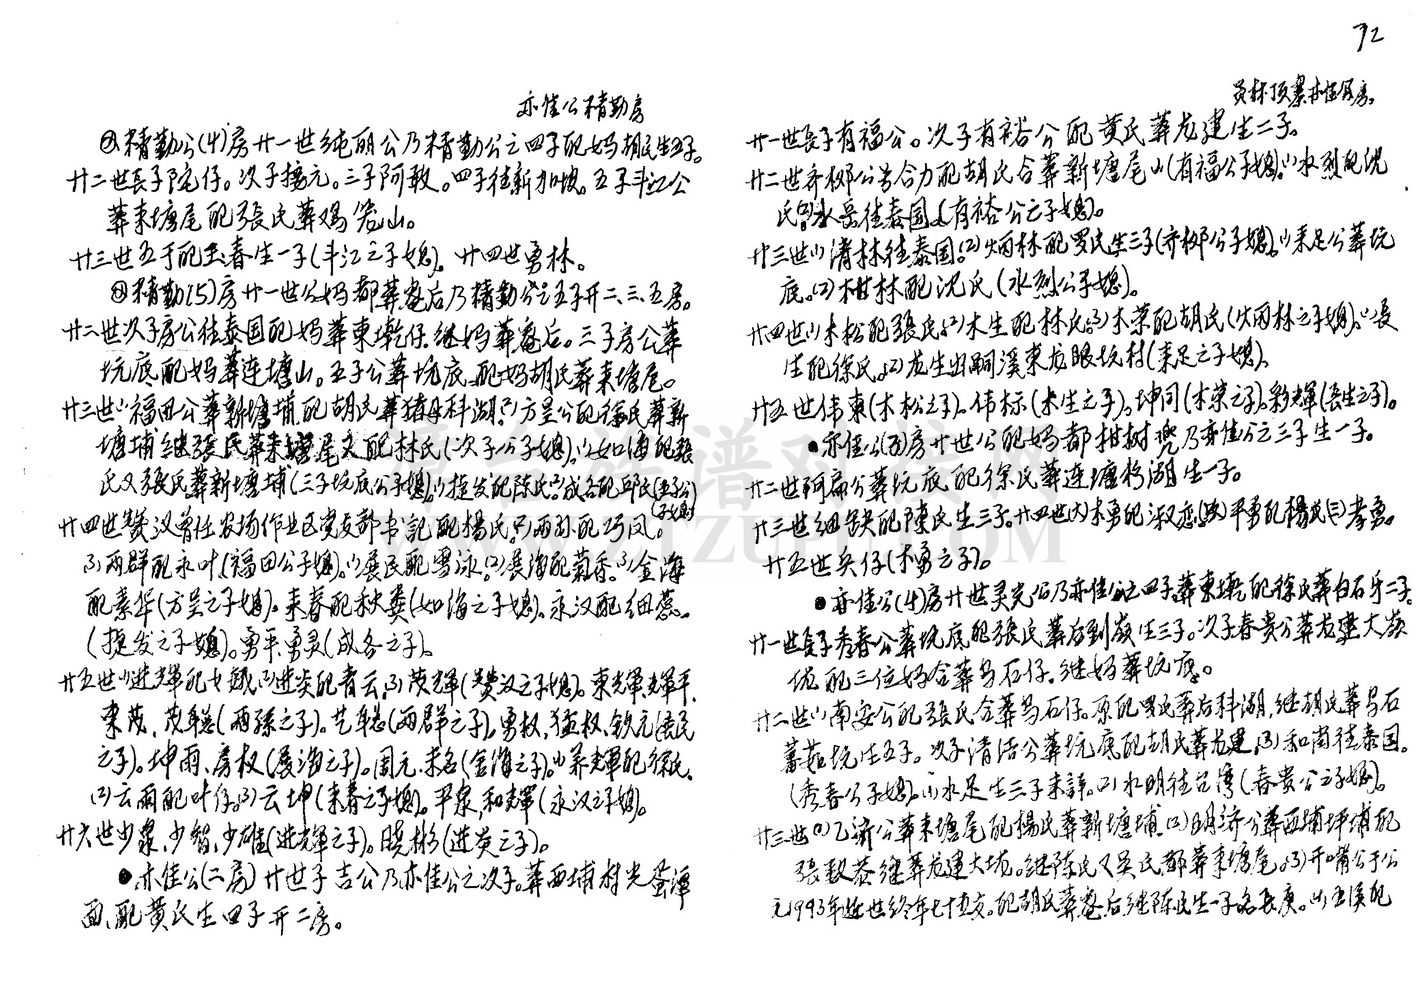 72
亦佳公精勤房
精勤公(4)房廿一世纯丽公乃精勤公之四子配妈胡氏生五子。
廿二世長子陀仔。次子接元。三子阿敢。四子往新加坡。五子斗江公
葬東塘尾配張氏葬鸡笼山。
廿三世五丁配玉春生一子(斗江之子媳)。廿四世勇林。
精勤(5)房廿一世公妈都葬庵后乃精勤公之五子开二、三、五房。
廿二世次子房公往泰国配妈葬東墘仔.继妈葬庵后。三子房公葬
坑底配妈葬连塘山。五子公葬坑底.配妈胡氏葬東塘尾。
廿三世(1)福田公葬新塘埔.配胡氏葬猪母科湖(2)方呈公配徐氏葬新
塘埔继張氏葬東塘尾又配林氏(次子公子媳)。(1)如海配張
氏又張氏葬新塘埔(三子坑底公子媳)。(1)捷发配陈氏(2)成各配邱氏(五子公子媳)
廿四世(1)赞汉曾任农场作业区党支部书記配楊氏(2)两孙配巧凤。
(3)两群配永叶(福田公子媳)。(1)展民配雪泳(2)展海配菊香(3)金海
配素华(方呈之子媳)。来春配秋娄(如海之子媳)。永汉配细蕊
(捷发之子媳)。勇平勇灵(成各之子)。
廿五世(1)进輝配女娥(2)进炎配青云(3)茂輝(赞汉之子媳)。東輝輝平、
東茂、茂聪(两孫之子)。艺聪(两群之子)。勇权,猛权,钦元(展民
之子)。坤雨、房权(展海之子)。周元、未名(金海之子)。(1)养輝配徐氏.
(2)云雨配叶仔(3)云坤(来春之子媳)。平泉,和輝(永汉之子媳)。
廿六世少泉,少智,少雄(进輝之子)。晓彬(进炎之子)。
●亦佳公(二房)廿世子吉公乃亦佳公之次子。葬西埔村光蛋潭
面,配黄氏生四子开二房。
廿一世長子有福公。次子有裕公配黄氏葬龙建生二子。
廿二世乔梛公号合力配胡氏合葬新塘尾山(有福公子媳)。(1)水烈配沈
氏(2)水岳往泰国(有裕公之子媳)。
廿三世(1)清林往泰国(2)炳林配罗氏生三子(乔梛公子媳)。(1)来足公葬坑
底。(2)树林配沈氏(水烈公子媳)。
廿四世(1)木松配張氏(2)木生配林氏(3)木荣配胡氏(炳林之子媳)。(1)長
生配徐氏(2)龙生出嗣溪東龙眼坑村(来足之子媳)。
廿五世伟東(木松之子)。伟标(木生之子)。坤同(木荣之子)。彩輝(長生之子)。
●亦佳公(3)房廿世公配妈都柑树兜乃亦佳公之三子生一子。
廿二世阿扁公葬坑底.配徐氏葬连塘科湖生一子。
廿三世细缺配陳氏生三子。廿四世(大)木勇配淑恋(次)平勇配楊氏(三)孝勇。
廿五世兵仔(木勇之子)。
●亦佳公(4)房廿世灵光公乃亦佳公之四子葬東塘配徐氏葬白石牙二子。
廿一世長子秀春公葬坑底配張氏葬后到嶺生三子。次子春贵公葬龙建大嶺
配三位妈合葬马石仔.继妈葬坑底。
廿二世(1)南安公配張氏合葬马石仔.原配罗氏葬后科湖,继胡氏葬马石
蕃茹坑生五子。次子清洁公葬坑底配胡氏葬龙建(3)和尚往泰国。
(秀春公子媳)。(1)水足生三子未詳。(2)水明往台湾(春贵公之子媳)。
廿三世(1)乙济公葬東塘尾配楊氏葬新塘埔(2)明济公葬西埔坪埔配
張继葬龙建大坟。继陈氏又吴氏都葬東塘尾。(3)开嘴公于公
元1993年逝世终年七十五岁。配胡氏葬庵后继陈氏生一子名長庚。(4)玉溪配